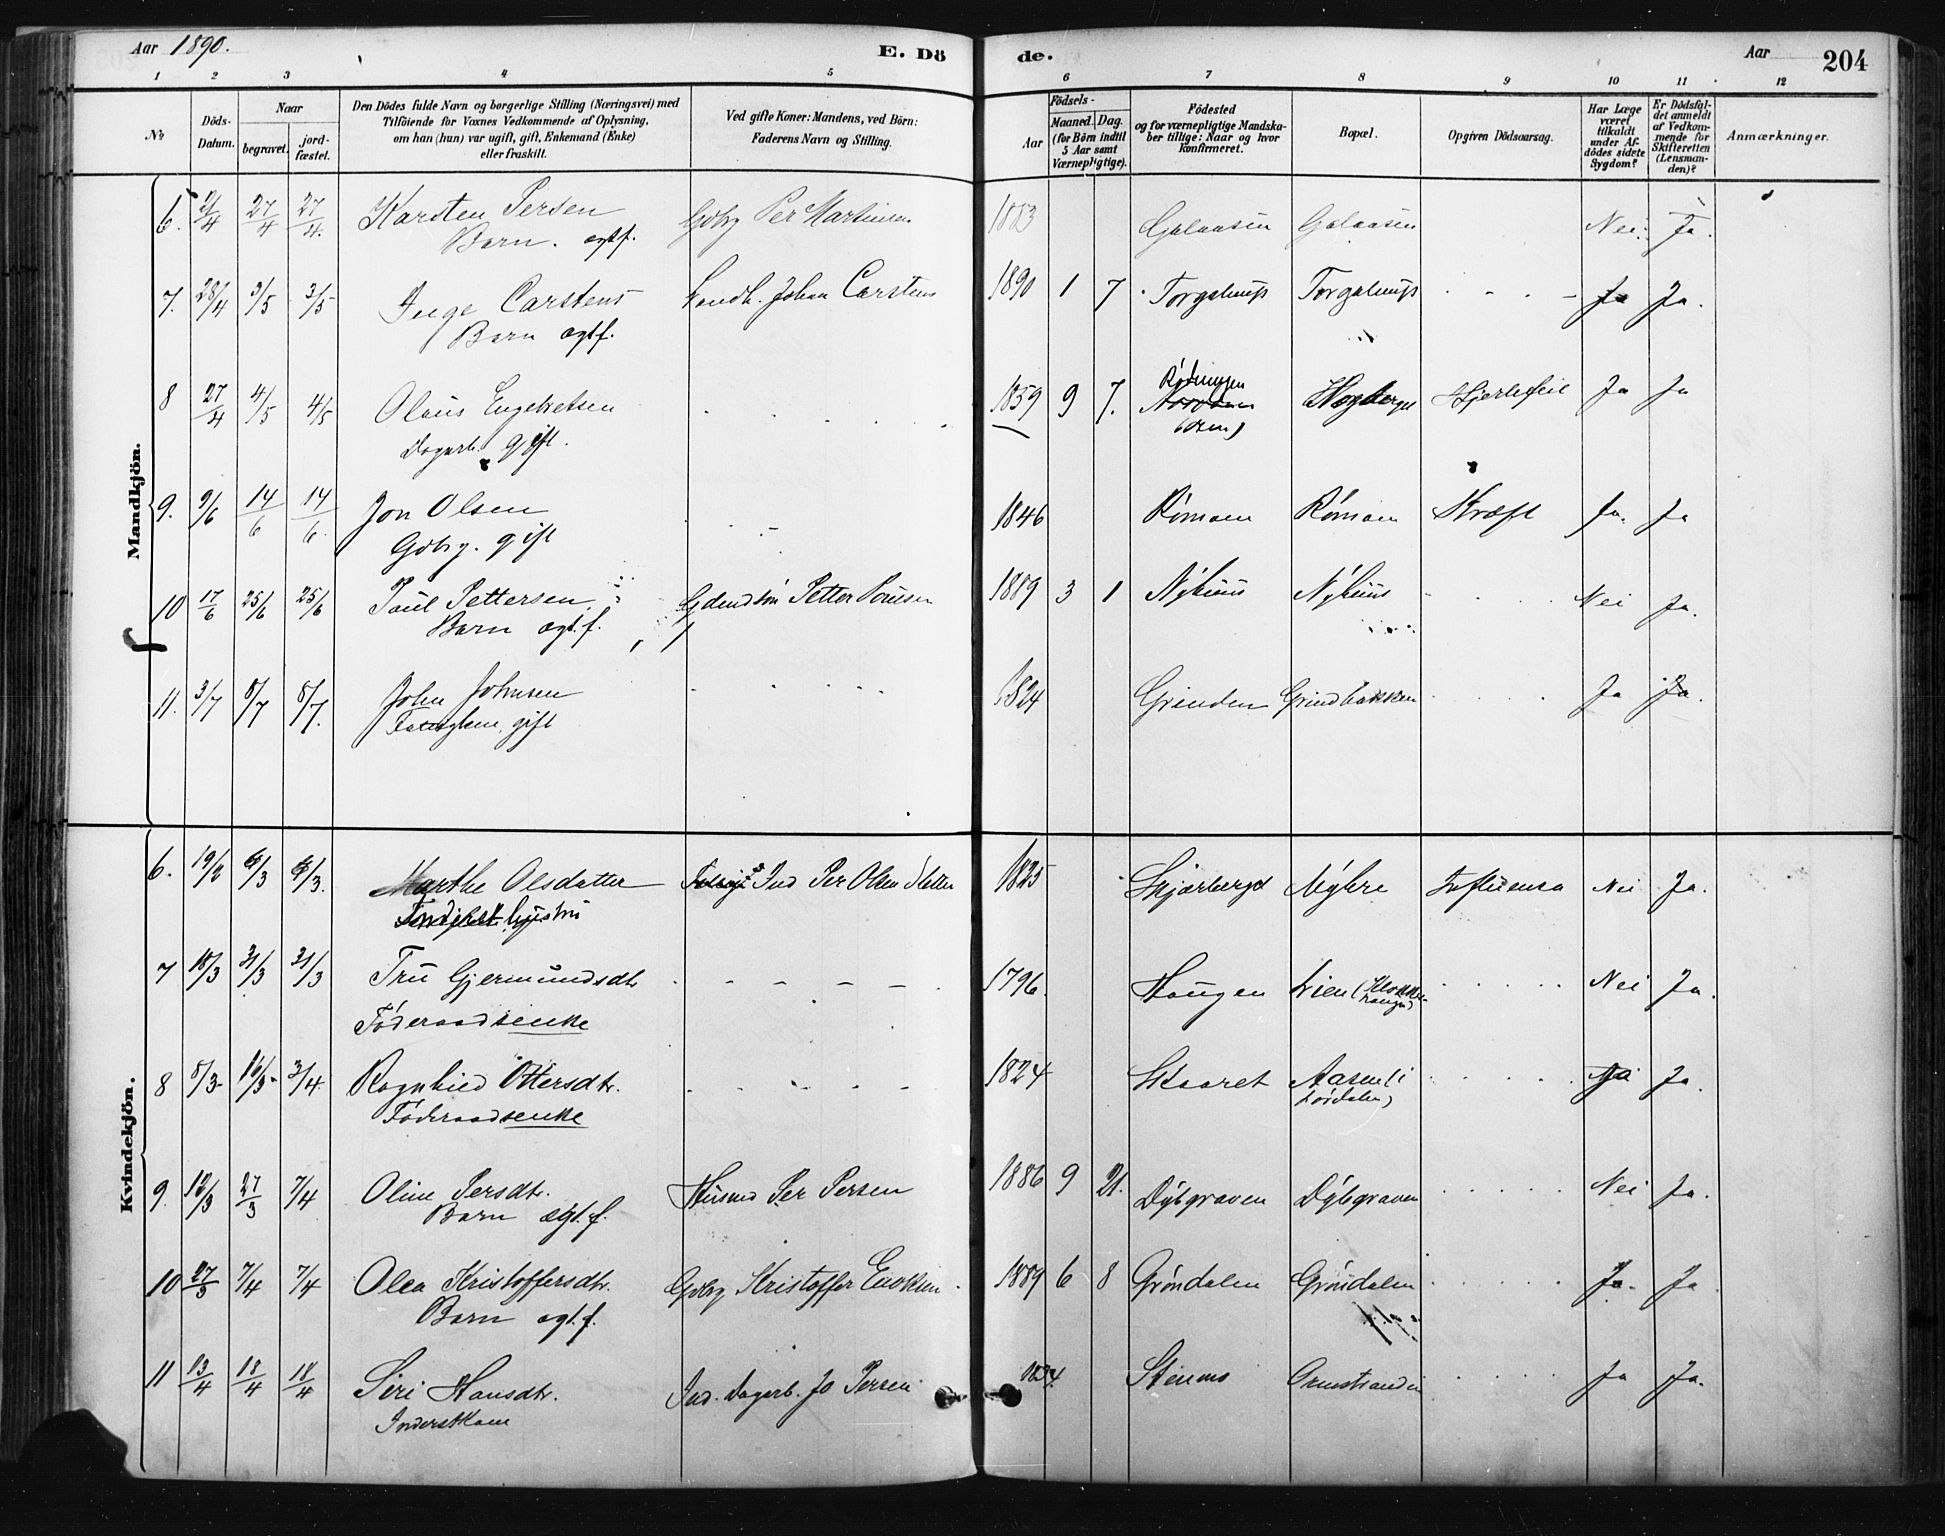 Aar 1890.
E. Dö
de.
Aar
204
1 2 3 4 5 6 7 8 9 10 11 12
No
Döds-Datum.
Naar
begravet.
jord-fæstet.
Den Dödes fulde Navn og borgerlige Stilling (Næringsvei) med
Tilföiende for Voxnes Vedkommende af Oplysning,
om han (hun) var ugift, gift, Enkemand (Enke)
eller fraskilt.
Ved gifte Koner: Mandens, ved Börn:
Faderens Navn og Stilling.
Födsels-
Aar
Maaned. Dag.
(for Börn indtil
5 Aar samt
Værnepligtige).
Födested
og for værnepligtige Mandska-
ber tillige: Naar og hvor
Konfirmeret.
Bopæl.
Opgiven Dödsaarsag.
Har Læge
været
tilkaldt
under Af-
dödes sidste
Sygdom?
Er Dödsfal-
det anmeldt
af Vedkom-
mende for
Skifteretten
(Lensman-
den)?
Anmærkninger.
Mandkjön.
6. 21/4 27/4 27/4. Karsten Persen Gdbr Per Martinsen 1883 Galaasen Galaasen Nei. Ja.
Barn. ægtf.
7. 28/4 3/5 3/5 Inge Carstens Landh. Johan Carstens 1890 1 7 Torgalsmyr Torgalsmyr - - - - Ja Ja.
Barn ægtf.
8 27/4 4/5 4/5 Olaus Engebretsen 1859 9 7. Rødningen Hogberget Hjertefeil Ja Ja
Dagarb. gift.
9. 9/6 14/6 14/6. Jon Olsen 1846 Rømoen Rømoen Kræft Ja. Ja
Gdbr. gift
10 17/6 25/6 25/6 Paul Pettersen Petter Poulsen 1889 3 1 Nyhuus Nyhuus Nei Ja.
Barn ægt.f.
11. 3/7 8/7 8/7. John Johnsen 1824 Grinden Grindbakken Ja Ja.
gift
Kvindekjön.
6. 19/2 6/3 6/3. Marthe Olsdatter Ind Per Olsen Sletten 1825 Skjærberget Nybre Influensa Nei Ja.
Hustru
7 18/3 31/3 31/3 Tru Gjermundsdt. - - - - - 1796. Haugen Lien (Klokker-
haugen) Nei Ja.
Föderaadsenke
8 8/3 16/3 3/4 Ragnhild Ottersdt. 1824 Skaaret Aasen (i
Lördalen) Ja.
Föderaadsenke
9. 12/3 27/3 7/4 Oline Persdt. Husmd Per Persen 1886 9 21. Dybgraven Dybgraven Nei Ja.
Barn ægt.f.
10 27/3 7/4 7/4 Olea Kristoffersdt. Gdbr Kristoffer Enoksen 1889 6 8 Gröndalen Gröndalen Ja. Ja
Barn ægt.f.
11 13/4 18/4 18/4 Siri Hansdt. Ind. Dagarb. Jo Persen 1834. Stenmo Ormstranden Ja Ja.
Inderstkone